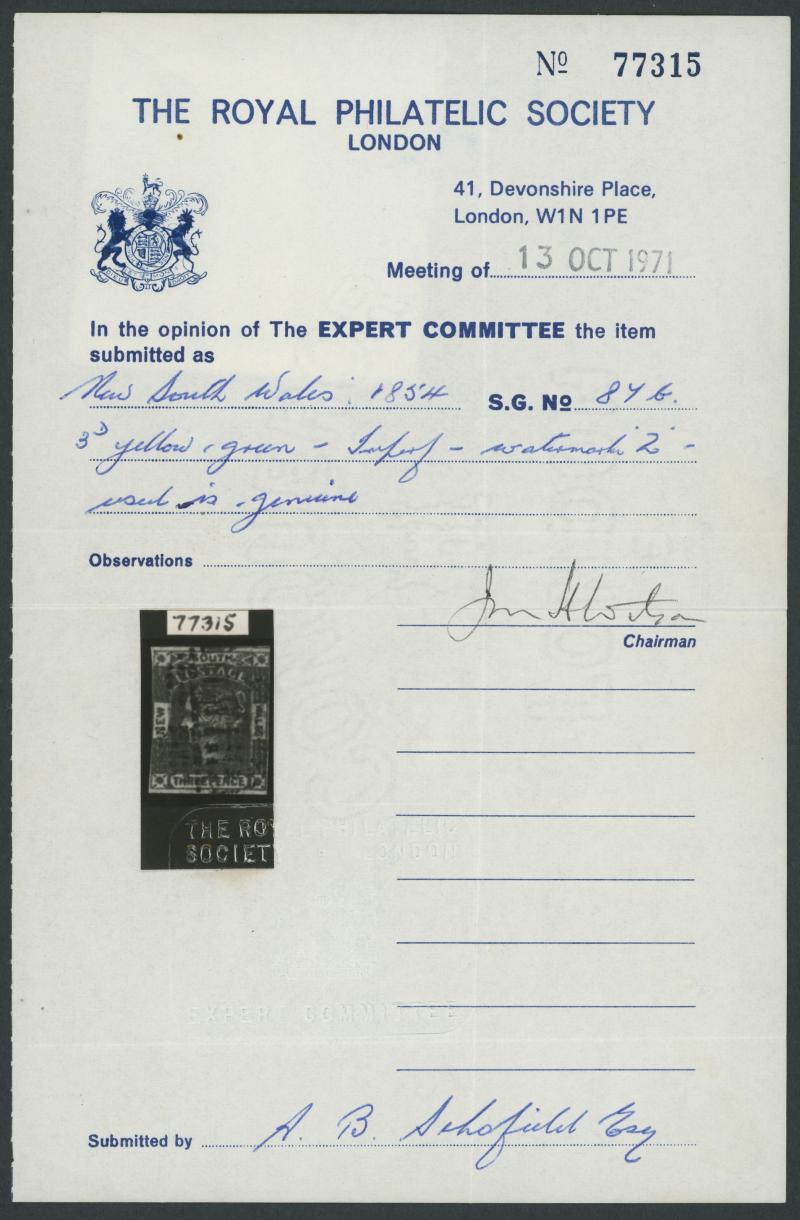 Nº 77315
THE ROYAL PHILATELIC SOCIETY
LONDON
41, Devonshire Place,
London, W1N 1PE
Meeting of 13 OCT 1971
In the opinion of The EXPERT COMMITTEE the item
submitted as
New South Wales: 1854 S.G. Nº 87b.
3D yellow-green - Imperf - watermark '2' -
used is genuine
Observations
77315
Chairman
SOUTH
POSTAGE
NEW
WALES
THREE PENCE
THE ROYAL PHILATELIC
SOCIETY LONDON
EXPERT COMMITTEE
Submitted by A. B. Schofield Esq